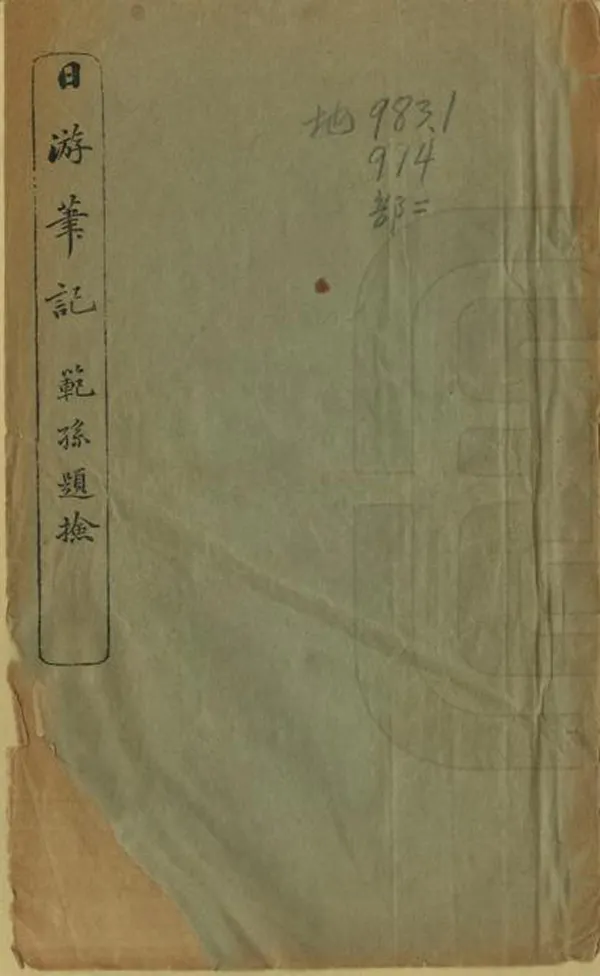 日游筆記 範孫題撿
地983.1
974
部二